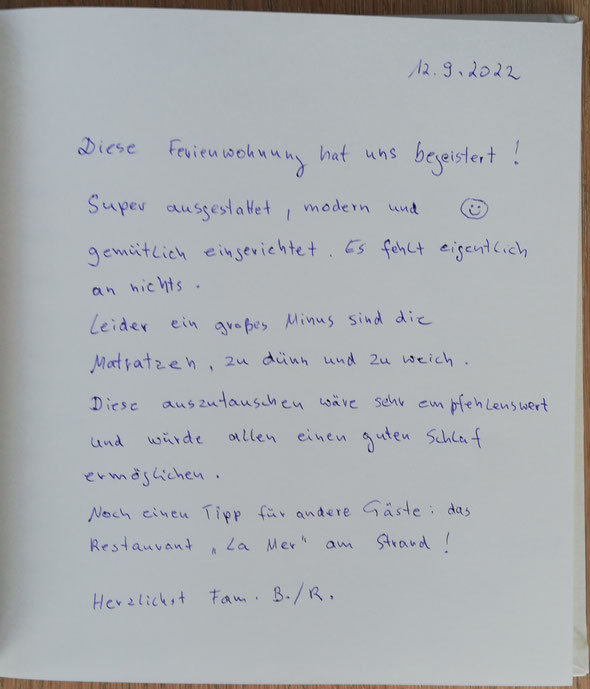 12.9.2022
Diese Ferienwohnung hat uns begeistert!
Super ausgestattet, modern und ☺
gemütlich eingerichtet. Es fehlt eigentlich
an nichts.
Leider ein großes Minus sind die
Matratzen, zu dünn und zu weich.
Diese auszutauschen wäre sehr empfehlenswert
und würde allen einen guten Schlaf
ermöglichen.
Noch einen Tipp für andere Gäste: das
Restaurant „La Mer" am Strand!
Herzlichst Fam. B./R.